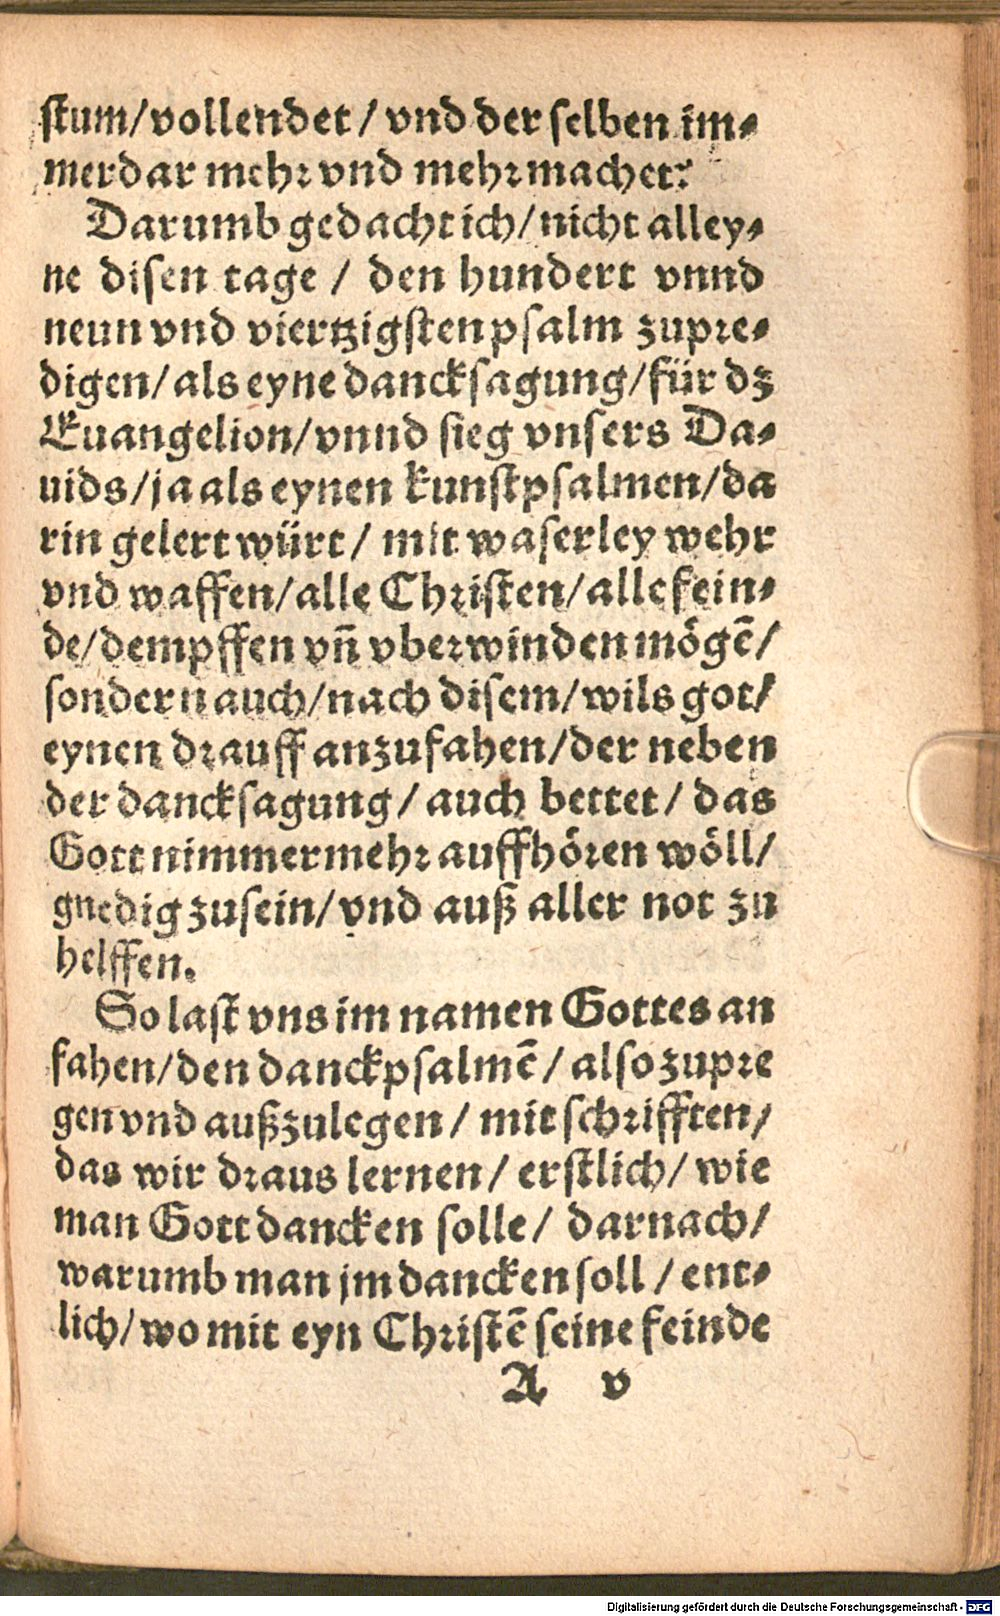 stum/vollendet/vnd der selben im-
merdar mehr vnd mehr machet?
Darumb gedacht ich/nicht alley-
ne disen tage/ den hundert vnnd
neun vnd viertzigsten psalm zupre-
digen/als eyne dancksagung/für dz
Euangelion/vnnd sieg vnsers Da-
uids/ja als eynen kunstpsalmen/da
rin gelert würt/ mit waserley wehr
vnd waffen/alle Christen/alle fein-
de/dempffen vñ vberwinden mögē/
sondern auch/nach disem/wils got/
eynen drauff anzufahen/der neben
der dancksagung/ auch bettet/ das
Gott nimmermehr auffhören wöll/
gnedig zusein/vnd auß aller not zu
helffen.
So last vns im namen Gottes an
fahen/den danckpsalmē/also zupre
gen vnd außzulegen/ mit schrifften/
das wir draus lernen/ erstlich/ wie
man Gott dancken solle/ darnach/
warumb man jm dancken soll/ ent-
lich/wo mit eyn Christē seine feinde
A v
Digitalisierung gefördert durch die Deutsche Forschungsgemeinschaft - DFG